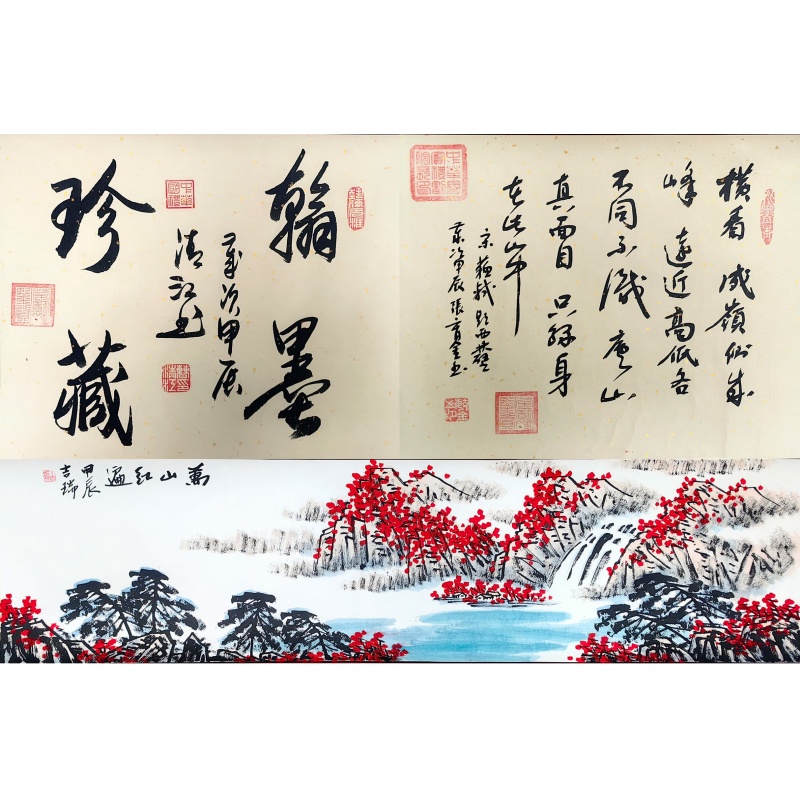 翰墨
珍藏
歲次甲辰
清江书
橫看成嶺側成
峰遠近高低各
不同不識廬山
真面目只緣身
在此山中
宋蘇軾題西林壁
歲次甲辰張育金书
萬山紅遍
甲辰
吉瑞